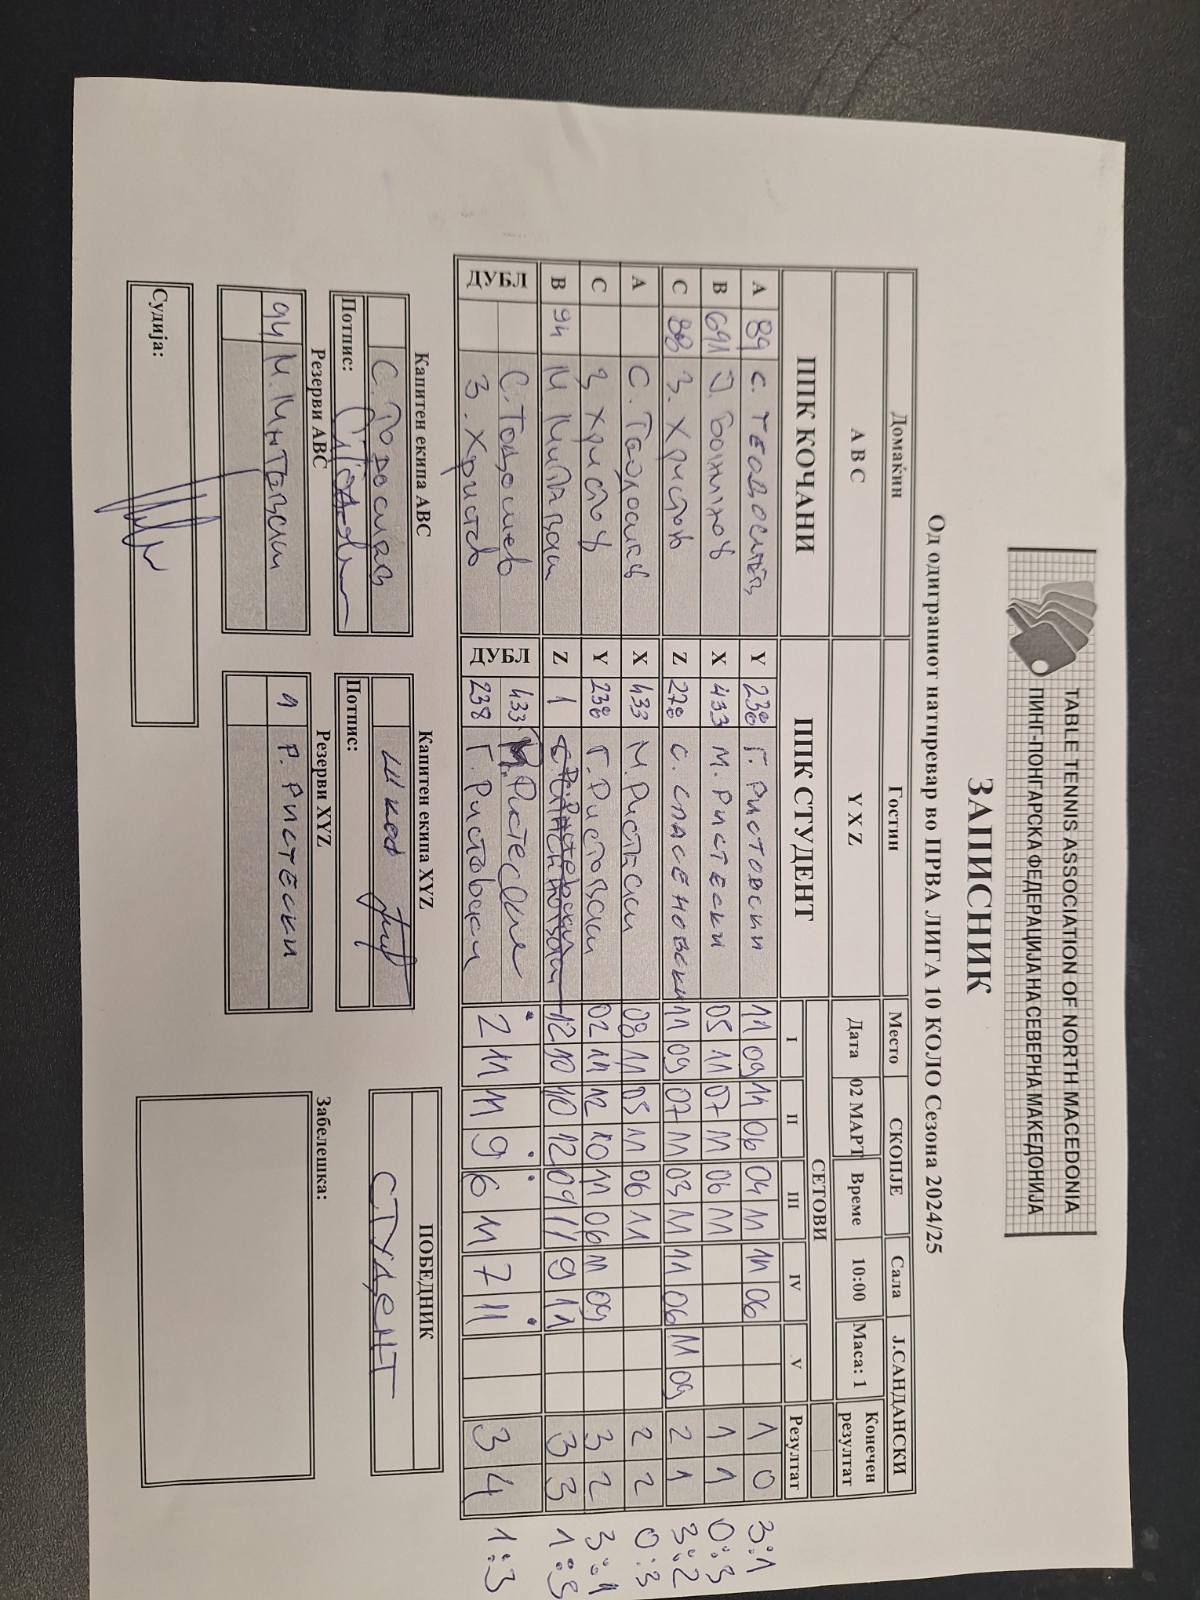 TABLE TENNIS ASSOCIATION OF NORTH MACEDONIA
ПИНГ-ПОНГАРСКА ФЕДЕРАЦИЈА НА СЕВЕРНА МАКЕДОНИЈА
ЗАПИСНИК
Од одиграниот натпревар во ПРВА ЛИГА 10 КОЛО Сезона 2024/25
Домаќин Гостин Место СКОПЈЕ Сала Ј.САНДАНСКИ
A B C Y X Z Дата 02 МАРТ Време 10:00 Маса: 1 Конечен резултат
ППК КОЧАНИ ППК СТУДЕНТ СЕТОВИ
I II III IV V Резултат
A 89 С. Y 238 Г. РИСТОВСКИ 11 09 11 06 04 11 11 06 1 0 3:1
B 691 X 433 М. РИСТЕСКИ 05 11 07 11 06 11 1 1 0:3
C 88 З. Христов Z 278 С. СПАСЕНОВСКИ 11 09 07 11 03 11 11 06 11 09 2 1 3:2
A С. X 433 М. 08 11 05 11 06 11 2 2 0:3
C З Христов Y 238 Г. Ристовски 02 11 12 10 11 06 11 09 3 2 3:1
B 94 М Z 1 12 10 10 12 09 11 9 11 3 3 1:3
ДУБЛ С. Тодосиев ДУБЛ 433 М. Ристески
З. Христов 238 Г. Ристовски 2 11 11 9 6 11 7 11 3 4 1:3
Капитен екипа ABC Капитен екипа XYZ ПОБЕДНИК
С. СТУДЕНТ
Потпис: Потпис:
Резерви ABC Резерви XYZ Забелешка:
94 М. Р. РИСТЕСКИ
Судија: